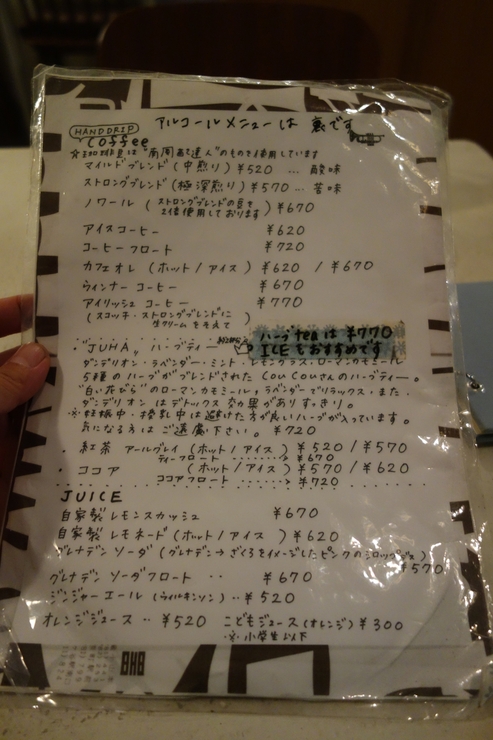 アルコールメニューは 裏です
HANDDRIP
Coffee
☆珈琲豆は"南周焙煎達人"のものを使用しています
マイルドブレンド(中煎り) ¥520 … 酸味
ストロングブレンド(極深煎り) ¥570 … 苦味
ノワール (ストロングブレンドの豆を
2倍使用しております) ¥670
アイスコーヒー ¥620
コーヒーフロート ¥720
カフェオレ (ホット/アイス) ¥620 / ¥670
ウィンナーコーヒー ¥670
アイリッシュ コーヒー ¥770
(スコッチ・ストロングブレンドに
生クリームをそえて
ハーブteaは ¥770
ICEもおすすめです
"JUHA" ハーブティー
ダンデリオン・ラベンダー・ミント・レモングラス・ローマンカモミール
5種のハーブがブレンドされた CouCouさんのハーブティー。
"白い花びら"のローマンカモミール、ラベンダーでリラックス・また、
ダンデリオンはデトックス効果がありすっきり。
※妊娠中・授乳中は避けた方が良いハーブが入っています。
気になる方はご遠慮下さい。 ¥720
・紅茶 アールグレイ (ホット/アイス) ¥520 / ¥570
ティーフロート ……… ¥670
・ココア (ホット/アイス) ¥570 / ¥620
ココアフロート ……… ¥720
JUICE
自家製 レモンスカッシュ ¥670
自家製 レモネード (ホット/アイス) ¥620
グレナデン ソーダ (グレナデン→ざくろをイメージしたピンクのシロップ)
¥570
グレナデン ソーダフロート ‥ ¥670
ジンジャーエール (ウィルキンソン) ‥ ¥520
オレンジジュース ‥ ¥520 こどもジュース (オレンジ) ¥300
※小学生以下